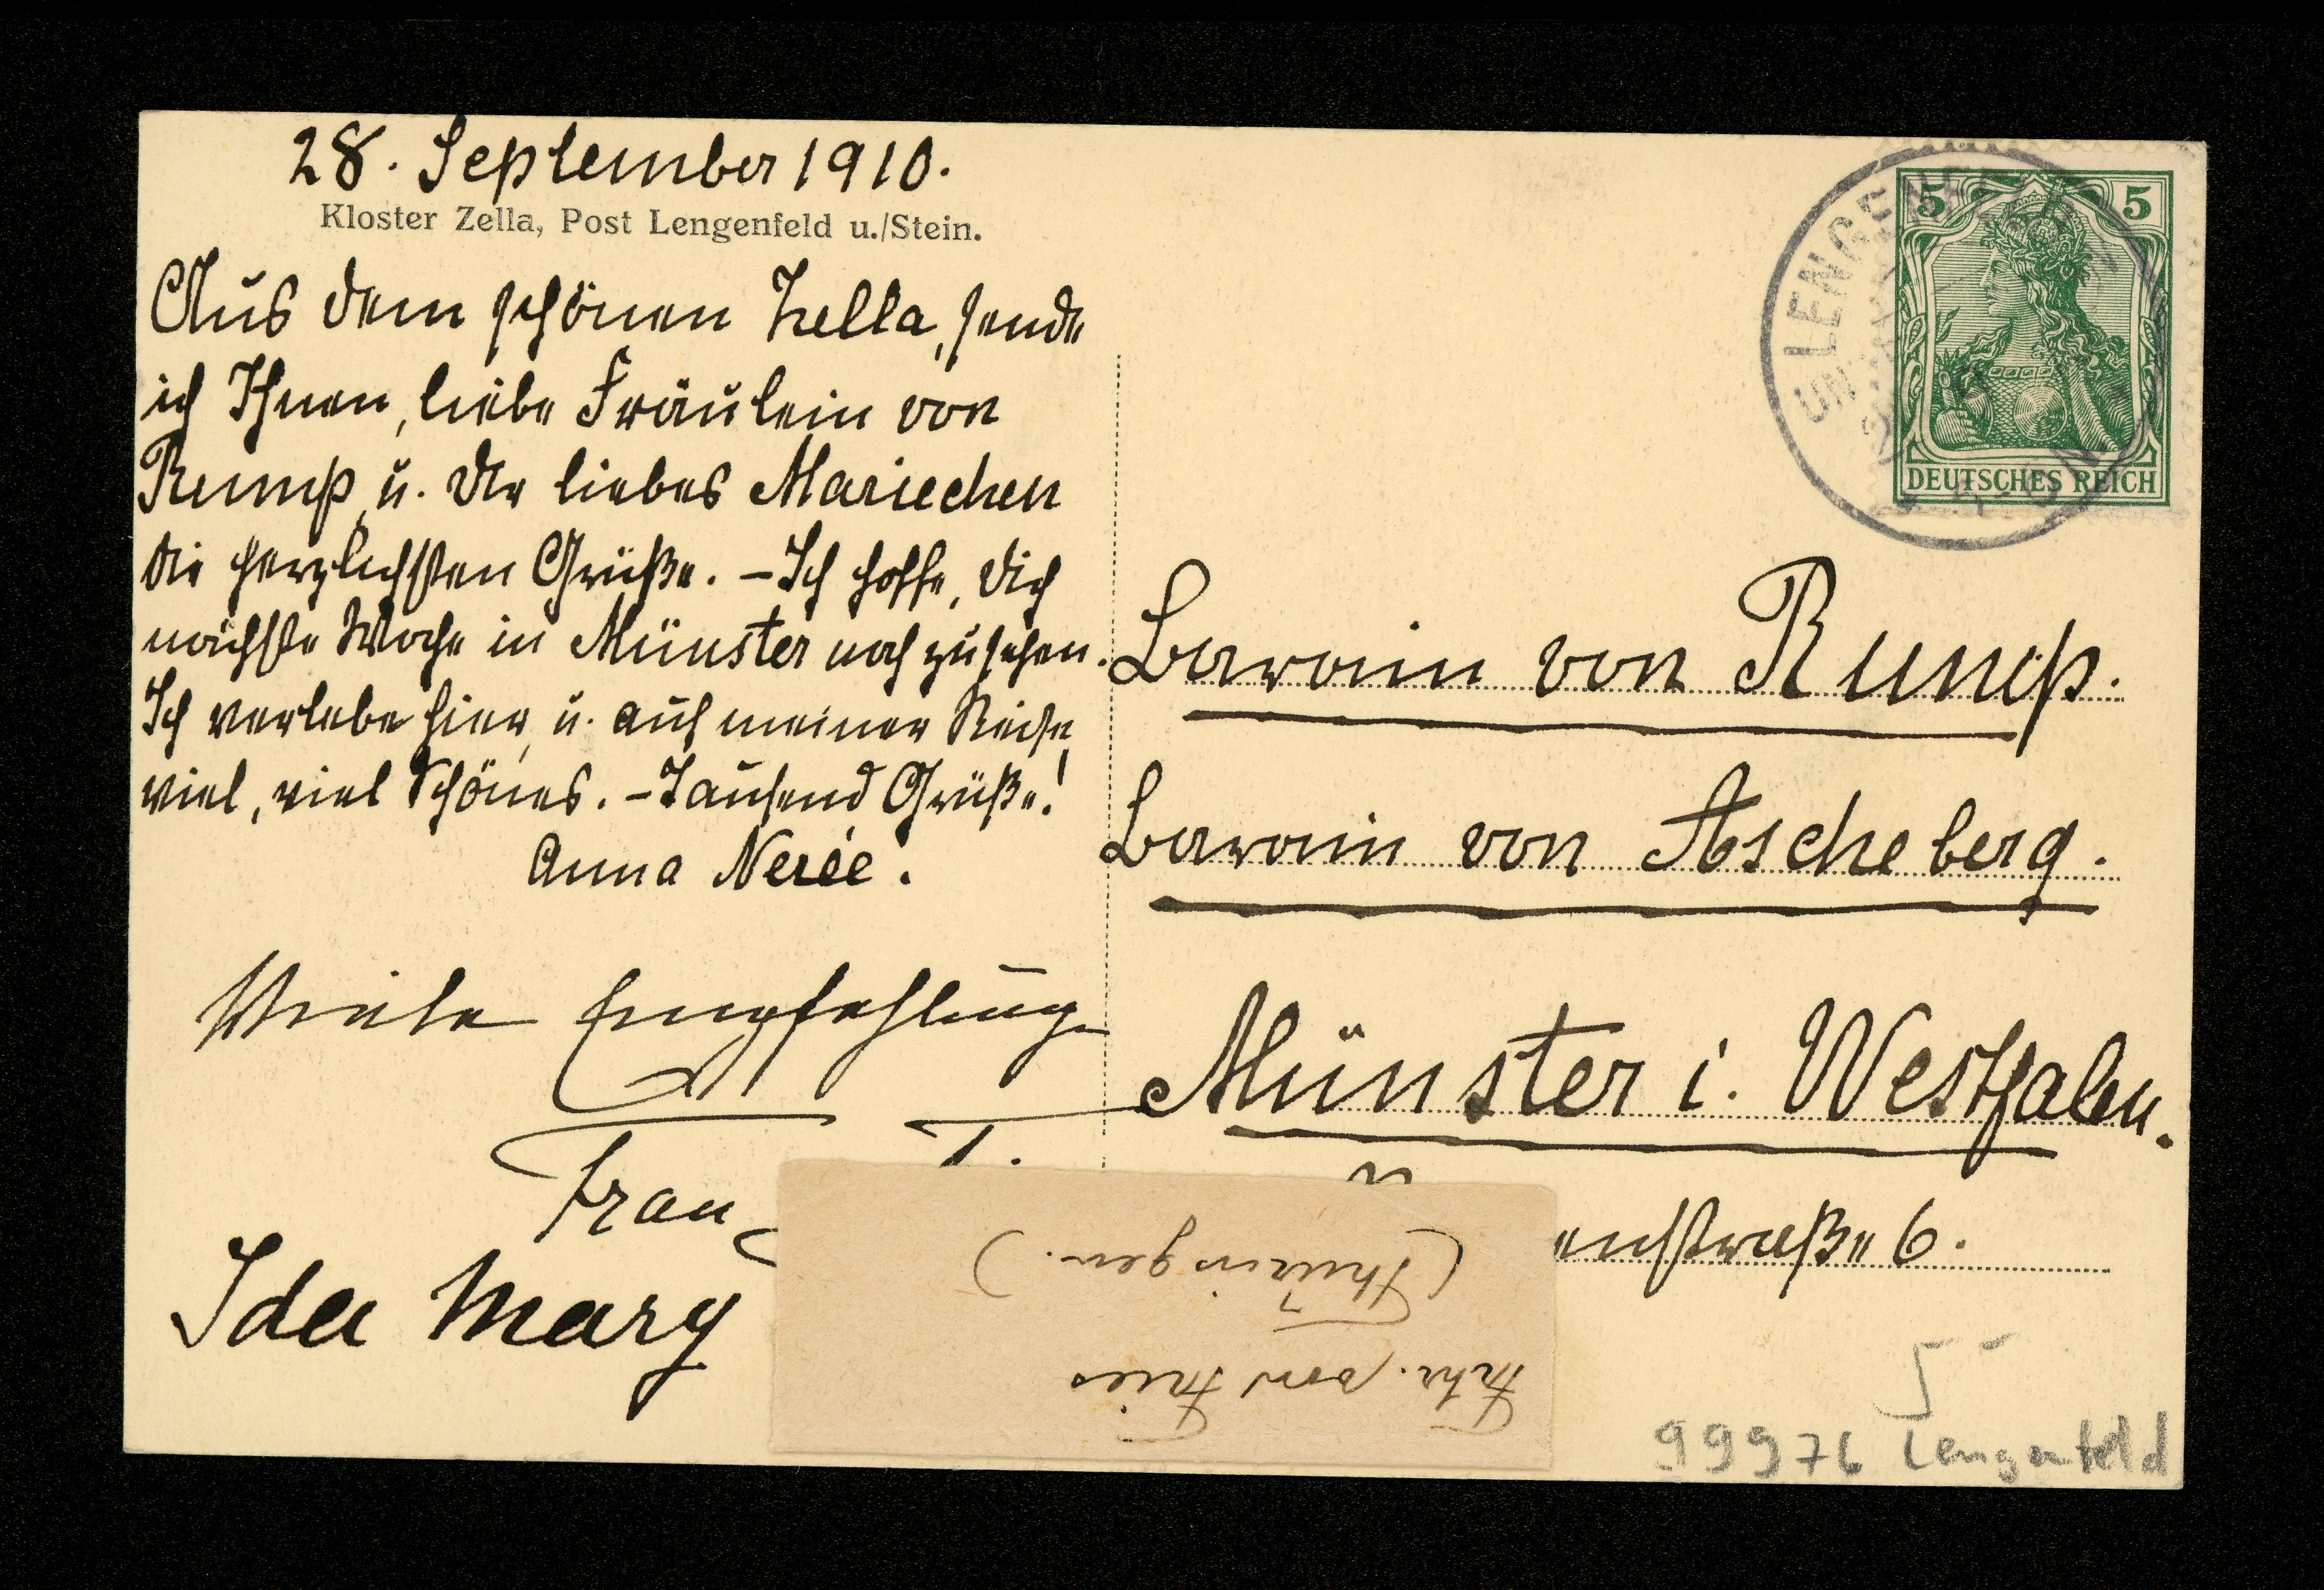 28. September 1910.
Kloster Zella, Post Lengenfeld u./Stein.
Aus dem schönen Zella, sende
ich Ihnen, liebe Fräulein von
Rump, u. Dir liebes Mariechen
die herzlichsten Grüße. – Ich hoffe, Dich
nächste Woche in Münster noch zu sehen.
Ich verlebe hier, u. auf meiner Reise,
viel, viel Schönes. – Tausend Grüße!
Anna Nerée.
Viele Empfehlung
Frau
Ida Mary
5 5
DEUTSCHES REICH
LENGENFELD
Baronin von Rump.
Baronin von Ascheberg.
Münster i. Westfalen.
enstraße 6.
Frhr. von Fries
(Thüringen.)
5 -
99976 Lengenfeld